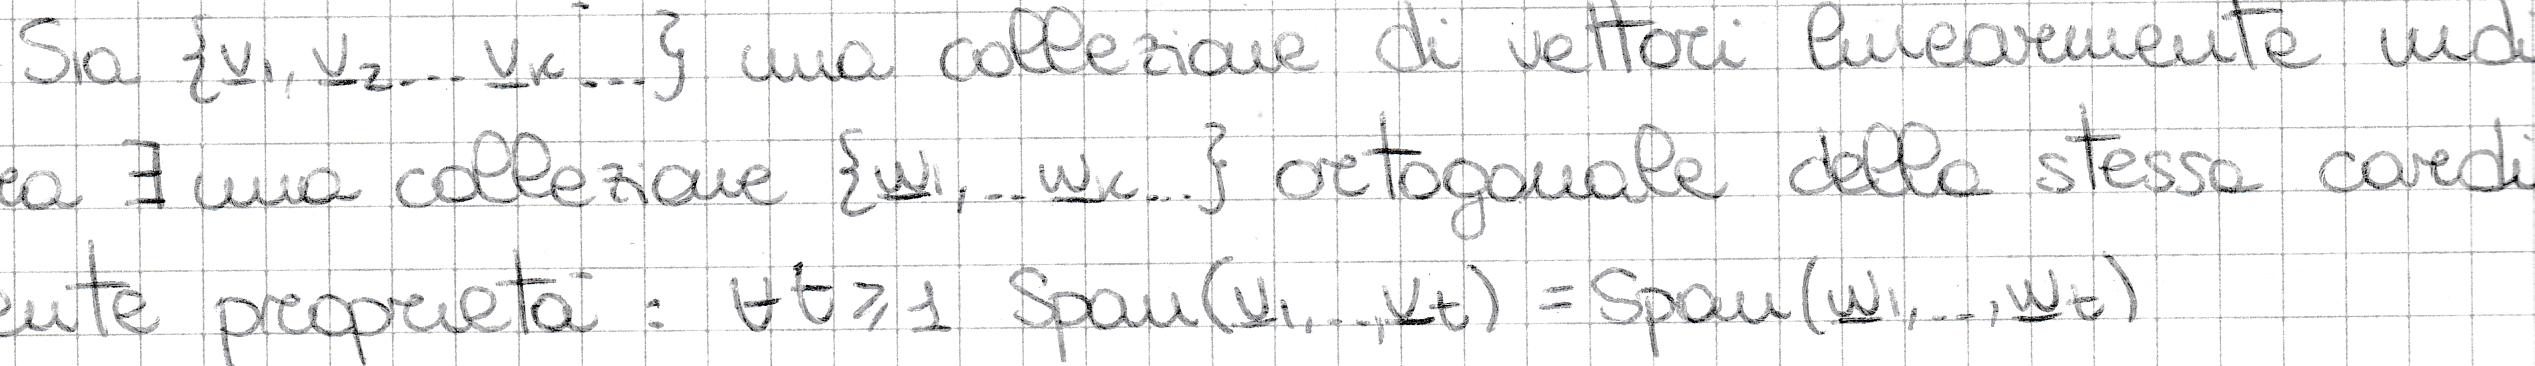 Sia {v₁, v₂... vₖ...} una collezione di vettori linearmente indi
ra ∃ una collezione {w₁,..wₖ...} ortogonale della stessa cardi
ente proprietà : ∀t⩾1 Span(v₁,..,vₜ) = Span(w₁,..,wₜ)